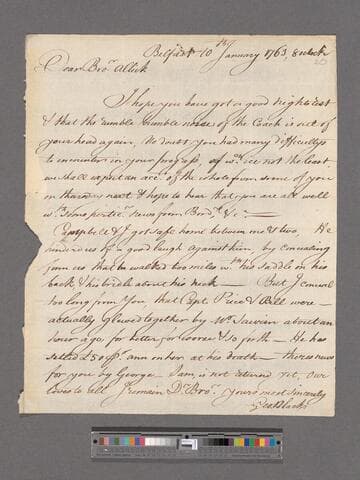 Belfast 10th January 1763, 8 oclock
20
Dear Bror. Alleck
I hope you have got a good nights rest
& that the rumble bumble noise of the Coach is out of
your head again, No doubt you had many difficultys
to encounter in your progress, of wch. ice not the least
we shall expect an acct. of the whole from some of you
on thursday next & hope to hear that you are all well
wt. some news from &c:—
Campbell & I got safe home between one & two, He
hindered us of a good laugh against him by concealing
from us that he walked two miles wth. his saddle on his
back & his bridle about his neck — But I conceal
too long from you that Capt. Rice & Bell were
actually glewed together by Mr. Saurin about an
hour ago for better for worse & so forth — He has
setled £50 pr. ann on her at his death — theres news
for you by George — Sam is not returned yet, Our
Loves to all I remain Dr. Bror. yours most sincerely
Geo: Black